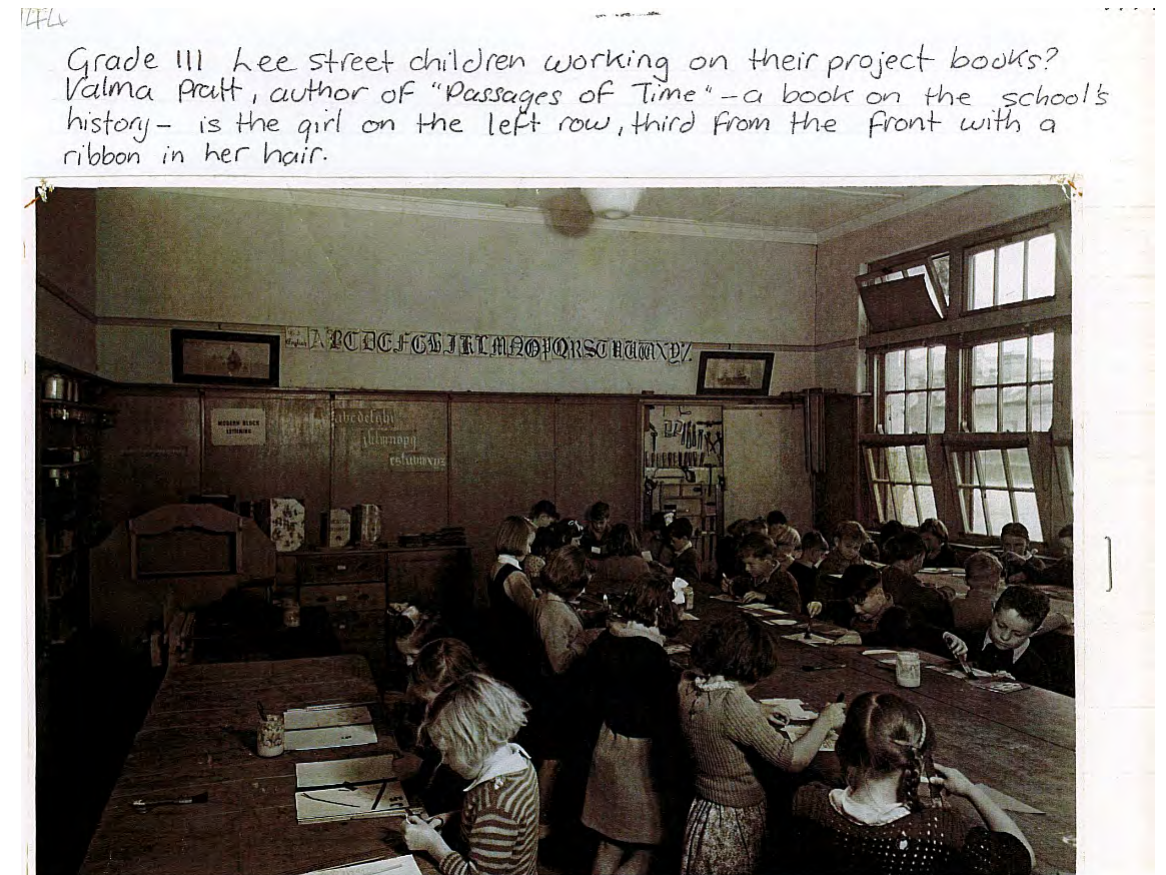 144
Grade III Lee street children working on their project books?
Valma Pratt, author of "Passages of Time" - a book on the school's
history - is the girl on the left row, third from the front with a
ribbon in her hair.
English
ABCDEFGHIJKLMNOPQRSTUVWXYZ
MODERN BLOCK
LETTERING
abcdefghi
jklmnopq
rstuvwxyz